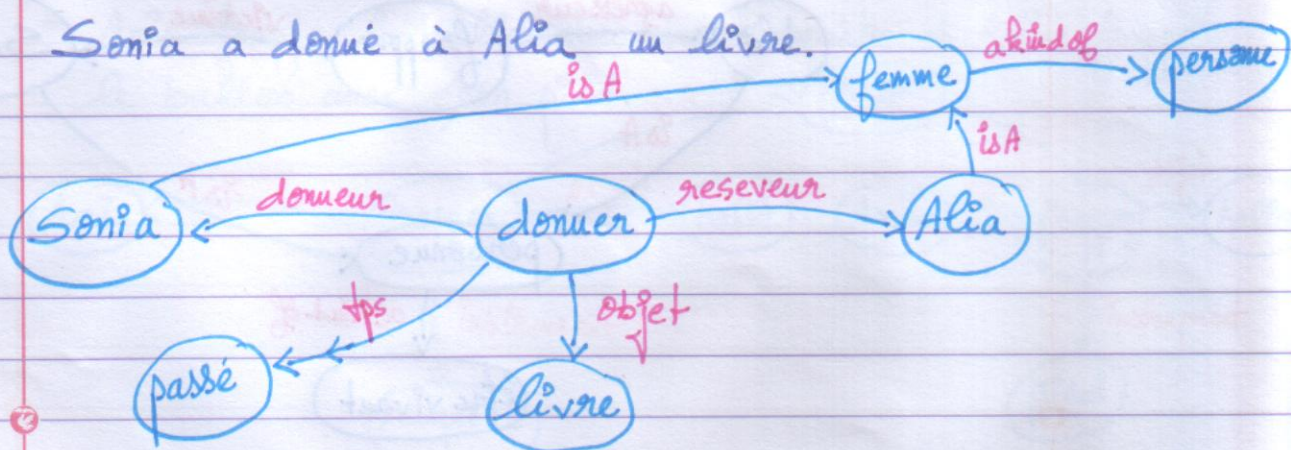 Sonia a donné à Alia un livre.
isA
femme
akindof
personne
isA
Sonia
donneur
donner
reseveur
Alia
tps
objet
passé
livre